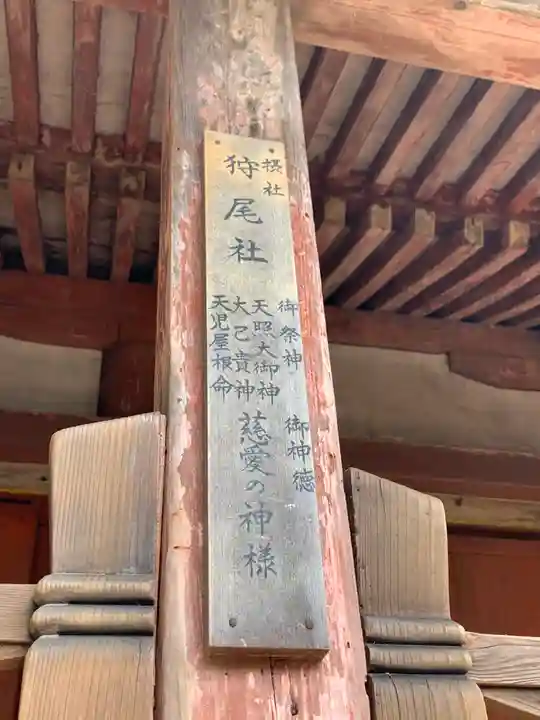 摂社
狩尾社
御祭神
天照大御神
大己貴神
天児屋根命
御神徳
慈愛の神様